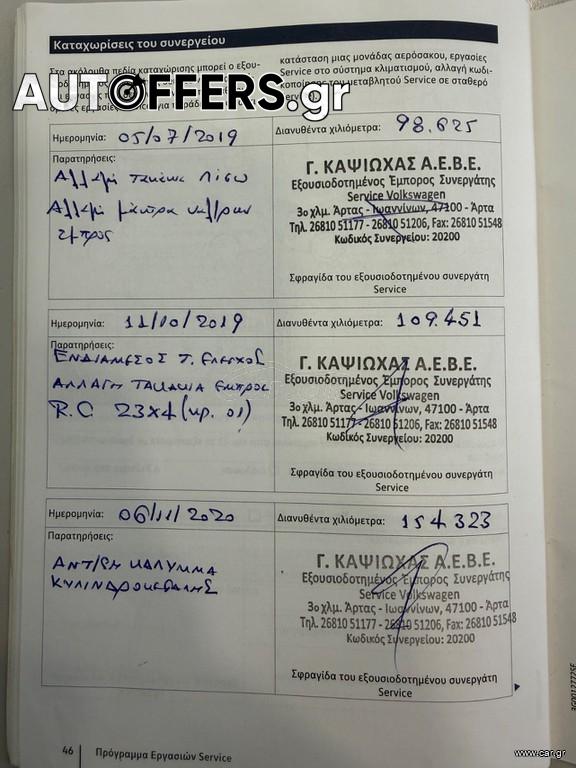 Καταχωρίσεις του συνεργείου
Στα ακόλουθα πεδία καταχώρισης μπορεί ο εξου-
κατάσταση μιας μονάδας αερόσακου, εργασίες
Service στο σύστημα κλιματισμού, αλλαγή κωδι-
κοποίησης του μεταβλητού Service σε σταθερό
AUTOFFERS.gr
Ημερομηνία: 05/07/2019
Διανυθέντα χιλιόμετρα: 98.625
Παρατηρήσεις:
Αλλαγή τακάκια πίσω
Αλλαγή
εμπρός
Γ. ΚΑΨΙΩΧΑΣ Α.Ε.Β.Ε.
Εξουσιοδοτημένος Έμπορος Συνεργάτης
Service Volkswagen
3ο χλμ. Άρτας - Ιωαννίνων, 47100 - Άρτα
Τηλ. 26810 51177 - 26810 51206, Fax: 26810 51548
Κωδικός Συνεργείου: 20200
Σφραγίδα του εξουσιοδοτημένου συνεργάτη
Service
Ημερομηνία: 11/10/2019
Διανυθέντα χιλιόμετρα: 109.451
Παρατηρήσεις:
ΕΝΔΙΑΜΕΣΟΣ Τ. ΕΛΕΓΧΟΣ
ΑΛΛΑΓΗ ΤΑΚΑΚΙΑ ΕΜΠΡΟΣ
R.C 23X4 (κρ. 01)
Γ. ΚΑΨΙΩΧΑΣ Α.Ε.Β.Ε.
Εξουσιοδοτημένος Έμπορος Συνεργάτης
Service Volkswagen
3ο χλμ. Άρτας - Ιωαννίνων, 47100 - Άρτα
Τηλ. 26810 51177 - 26810 51206, Fax: 26810 51548
Κωδικός Συνεργείου: 20200
Σφραγίδα του εξουσιοδοτημένου συνεργάτη
Service
Ημερομηνία: 06/11/2020
Διανυθέντα χιλιόμετρα: 154.323
Παρατηρήσεις:
ΑΝΤ/ΣΗ ΚΑΛΥΜΜΑ
ΚΥΛΙΝΔΡΟΚΕΦΑΛΗΣ
Γ. ΚΑΨΙΩΧΑΣ Α.Ε.Β.Ε.
Εξουσιοδοτημένος Έμπορος Συνεργάτης
Service Volkswagen
3ο χλμ. Άρτας - Ιωαννίνων, 47100 - Άρτα
Τηλ. 26810 51177 - 26810 51206, Fax: 26810 51548
Κωδικός Συνεργείου: 20200
Σφραγίδα του εξουσιοδοτημένου συνεργάτη
Service
46 Πρόγραμμα Εργασιών Service
www.car.gr